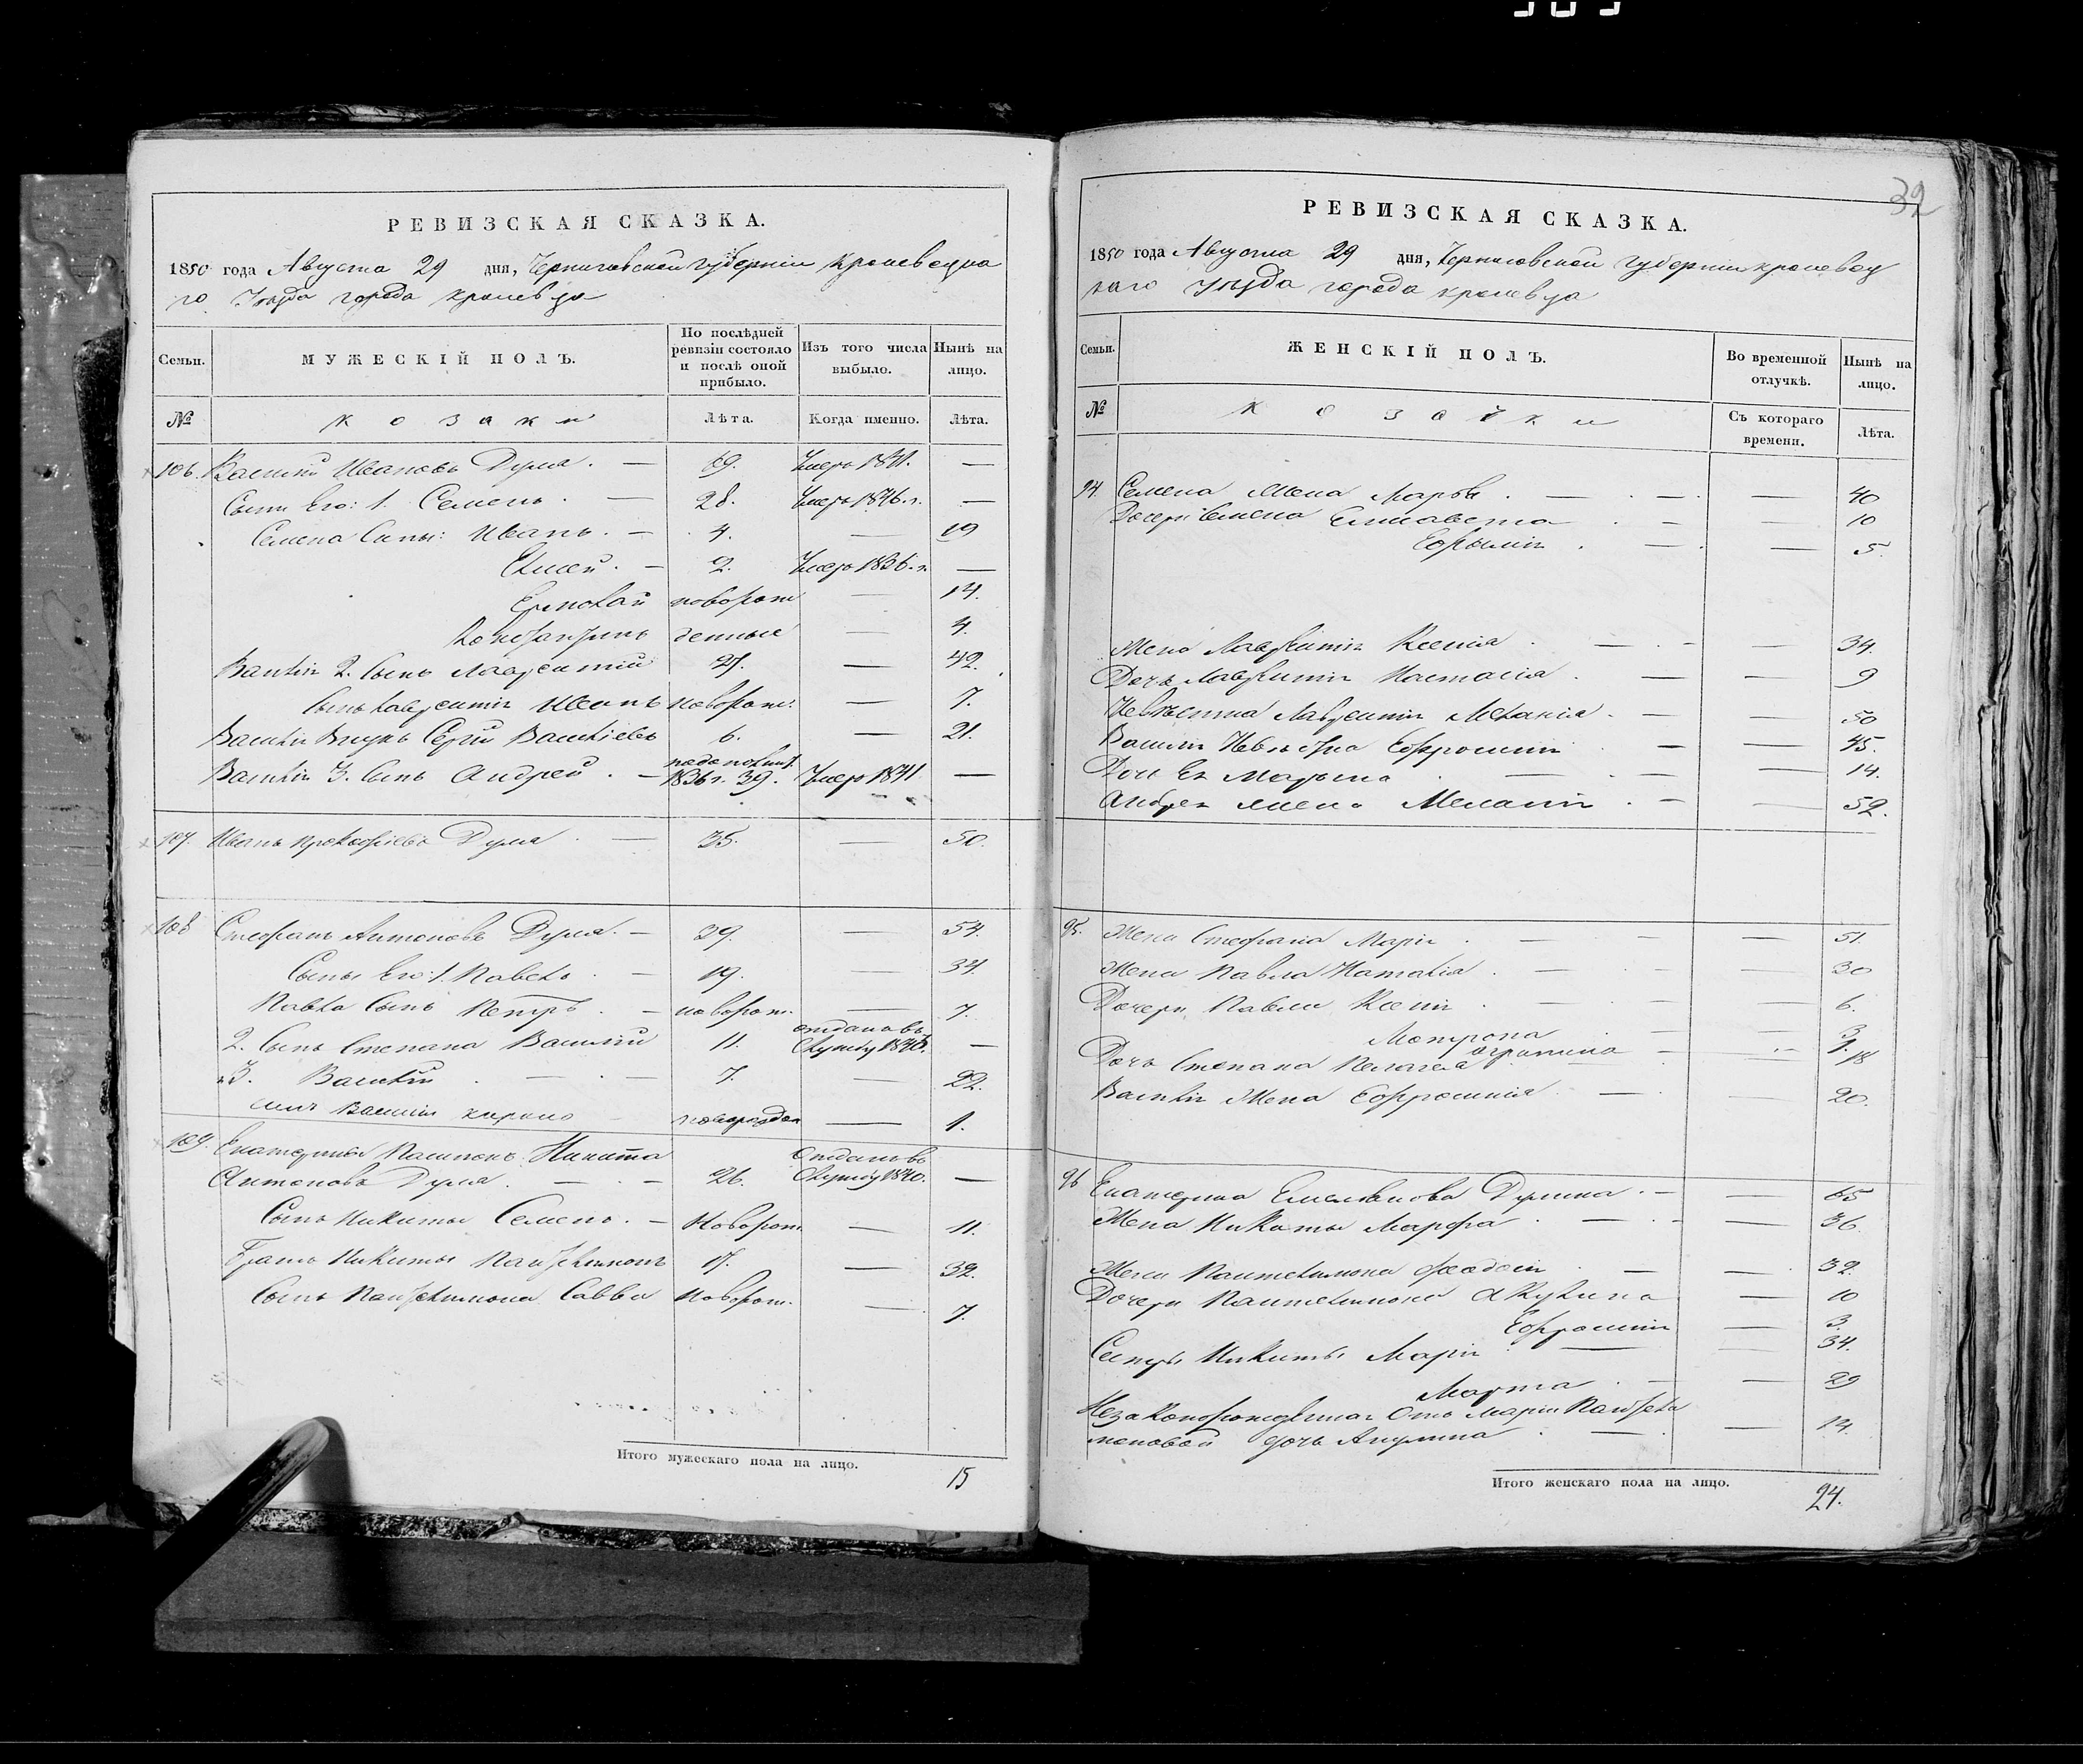 32
РЕВИЗСКАЯ СКАЗКА.
1850 года Августа 29 дня, Черниговской губерніи Кролевецка
го Уезда города Кролевца
Семьи.
МУЖЕСКІЙ ПОЛЪ.
По послѣдней ревизіи состояло и послѣ оной прибыло.
Изъ того числа выбыло.
Нынѣ на лицо.
№
Козаки
Лѣта.
Когда именно.
Лѣта.
106. Василий Ивановъ Дума. — 69. Умеръ 1841. —
Сыны Его: 1. Семенъ. — 28. Умеръ 1846. г. —
Семена Сыны: Иванъ. — 4. — 19
2. Умеръ 1836. г. —
Ермолай новорож 14.
Константинъ денные — 4.
Василия 2. Сынъ Лаврентий 27. — 42.
Сынъ Лаврентия Иванъ новорож. — 7.
Василия Внукъ Сергй Васильевъ 6. — 21.
Василия 3. Сынъ Андрей. — 1836 г. 39. Умеръ 1841 —
107. Иванъ Прокофьевъ Дума — 35. — 50.
108 Стефанъ Антоновъ Дума. — 39. — 54.
Сыны Его: 1. Павелъ. — 19. — 34.
Павла Сынъ Петръ. — новорож. — 7.
2. Сынъ Степана Василий 11. отданъ въ Службу 1840. —
3. Василий — 7. — 22.
сынъ Василия новорожден — 1.
109. Екатерины Никита
Антоновъ Дума. — 26. Отданъ въ Службу 1840. —
Сынъ Никиты Семенъ. — Новорож. — 11.
Братъ Никиты Пантелимонъ 17. — 32.
Сынъ Пантелимона Савва Новорож. — 7.
Итого мужескаго пола на лицо.
15
РЕВИЗСКАЯ СКАЗКА.
1850 года Августа 29 дня, Черниговской Губерніи Кролевец
каго Уезда города Кролевца
Семьи.
ЖЕНСКІЙ ПОЛЪ.
Во временной отлучкѣ.
Нынѣ на лицо.
№
Козачки
Съ котораго времени.
Лѣта.
94. Семена Жена Марѳа. — — 40
Дочери Семена Елисавета — 10
— 5.
Жена Лаврентия Ксения — — 34.
Дочь Лаврентия Настасия — — 9
Невѣстка Лаврентия Мелания. — — 50
Василия Невѣстка Ефросиния — — 45.
Дочь Ея Марьяна — — 14.
Андрея жена Мелания — — 52.
95. Жена Стефана Мария — — 51.
Жена Павла Наталия. — — 30
Дочери Павла Ксения — — 6.
Мотрона — 3.
Агрипина — 1.
Дочь Степана Пелагея — 18
Василия Жена Ефросиния — — 20.
96 Екатерина Емельянова Думина. — — 65
Жена Никиты Марфа — — 36.
Жена Пантелимона Феодосия — — 32.
Дочери Пантелимона Акулина — 10
Ефросиния — 3.
Сестры Никиты Мария — — 34.
Марта — — 29
Незаконорожденная Отъ Марии Пантели
моновой дочь Акулина — — 14.
Итого женскаго пола на лицо.
24.